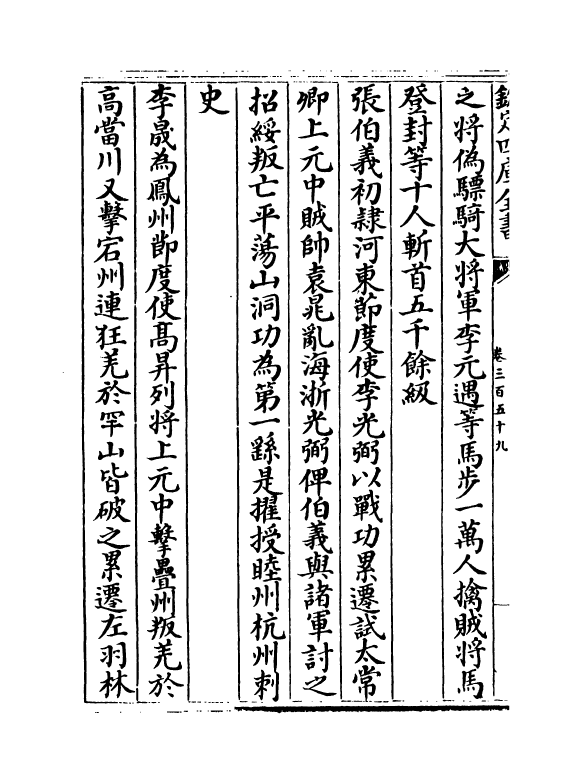 欽定四庫全書
卷三百五十九
之將偽驃騎大將軍李元遇等馬步一萬人擒賊將馬
登封等十人斬首五千餘級
張伯義初隷河東節度使李光弼以戰功累遷試太常
卿上元中賊帥袁晁亂海浙光弼俾伯義與諸軍討之
招綏叛亡平蕩山洞功為第一繇是擢授睦州杭州刺
史
李晟為鳳州節度使髙昇列將上元中擊疊州叛羌於
高當川又擊宕州連狂羌於罕山皆破之累遷左羽林